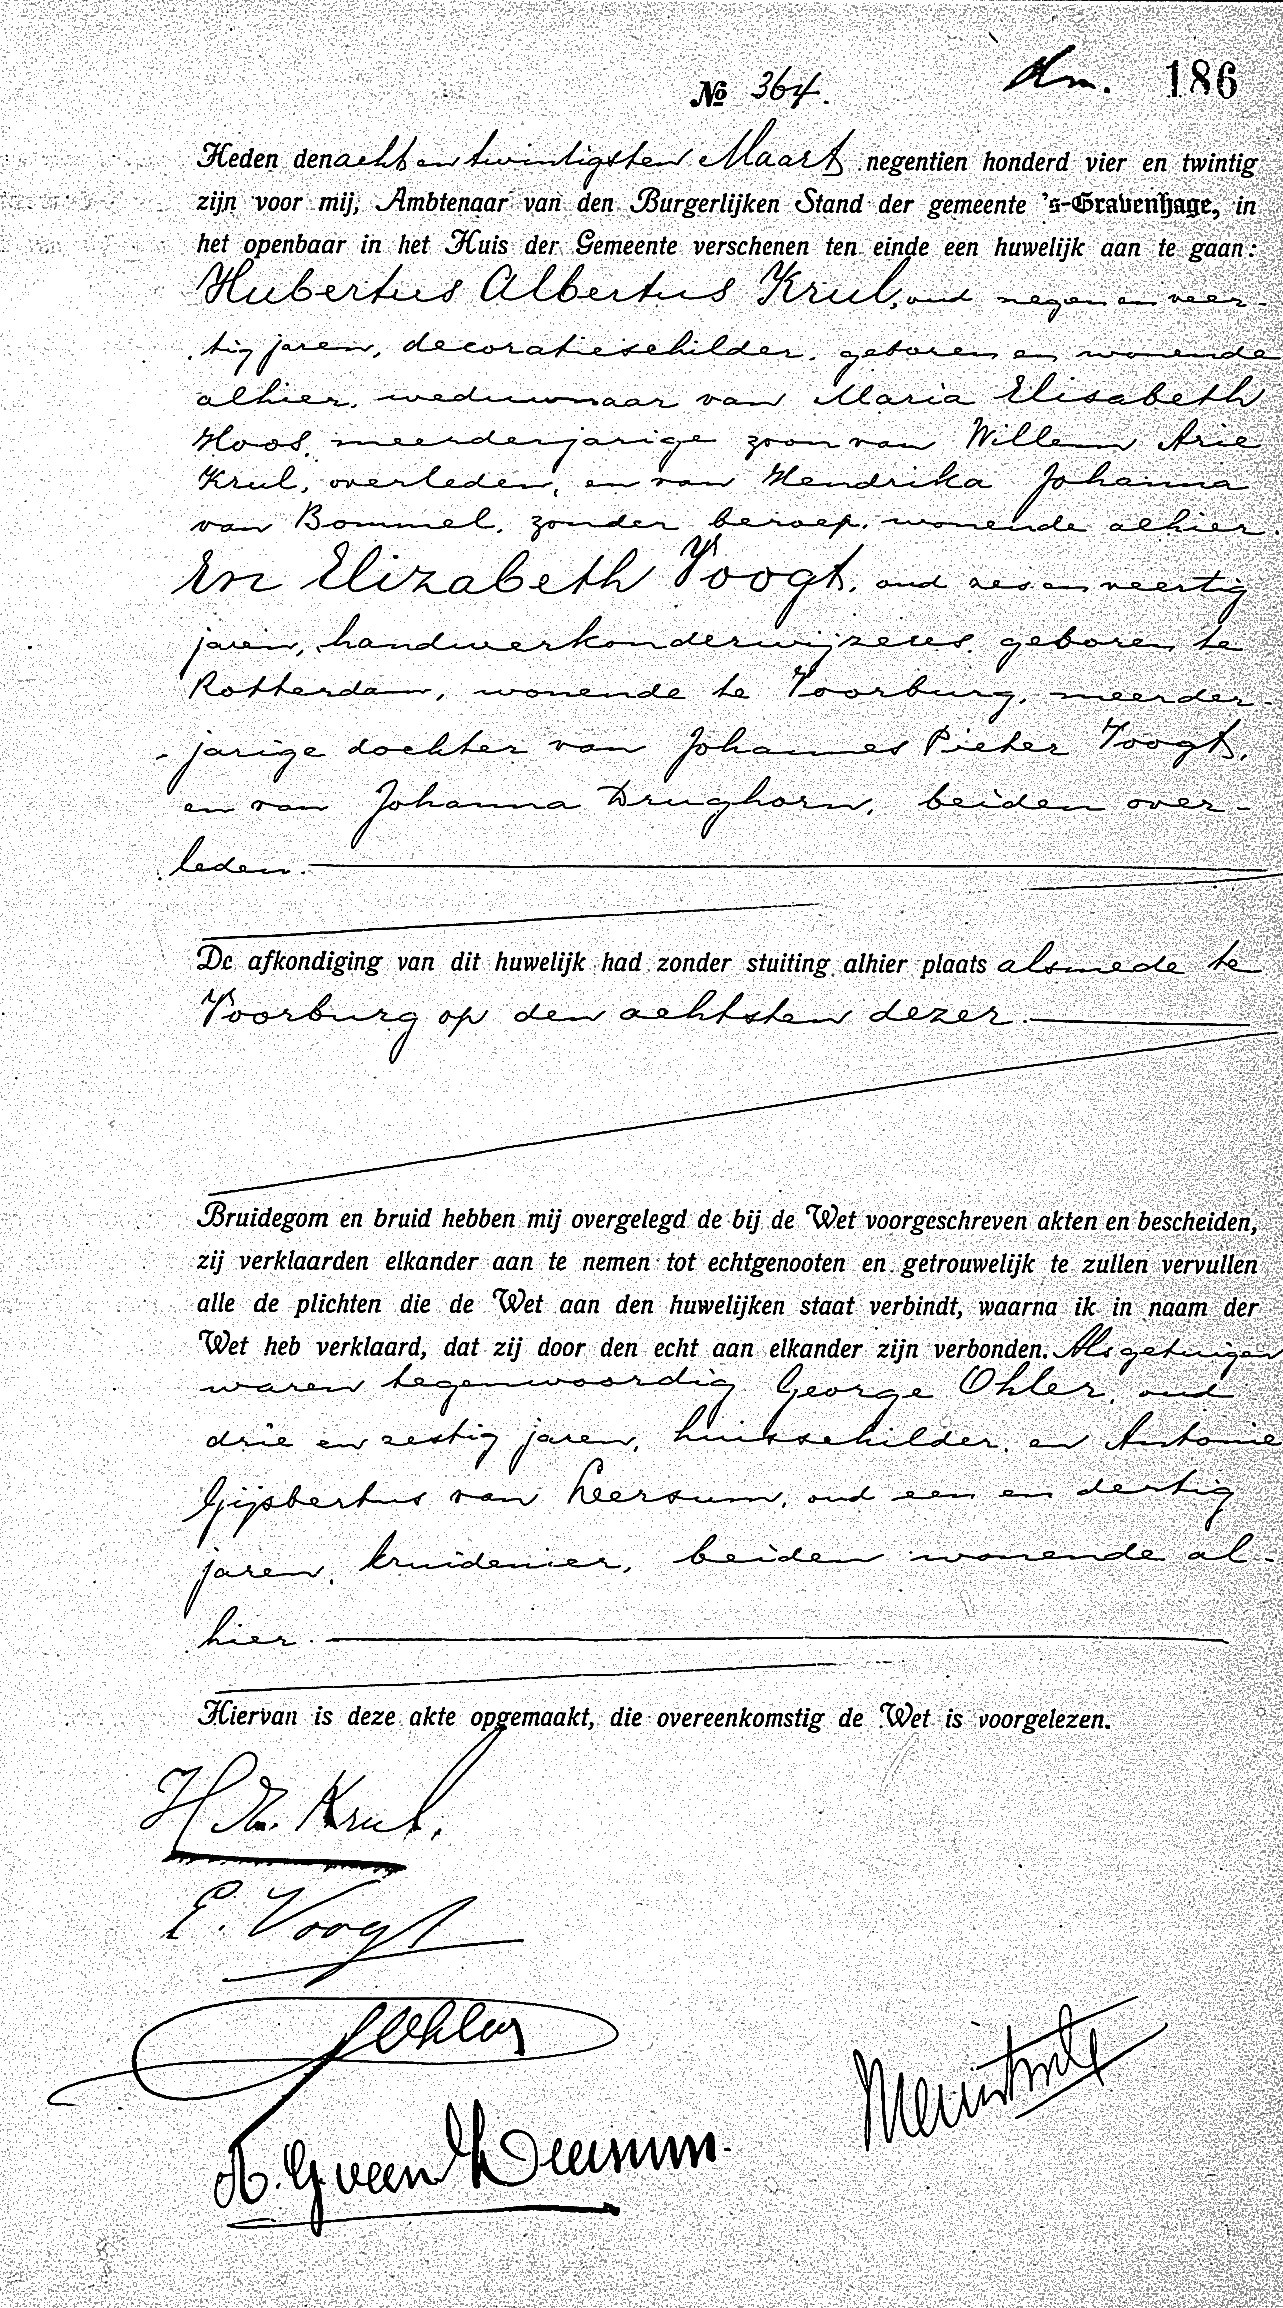 № 364. 186
Heden den acht en twintigsten Maart negentien honderd vier en twintig
zijn voor mij, Ambtenaar van den Burgerlijken Stand der gemeente 's-Gravenhage, in
het openbaar in het Huis der Gemeente verschenen ten einde een huwelijk aan te gaan:
Hubertus Albertus Krul, oud negen en veer-
tig jaren, decoratieschilder, geboren en wonende
alhier, weduwnaar van Maria Elisabeth
Hoos, meerderjarige zoon van Willem Arie
Krul, overleden, en van Hendrika Johanna
van Bommel, zonder beroep, wonende alhier.
En Elizabeth Voogt, oud zes en veertig
jaren, handwerkonderwijzeres, geboren te
Rotterdam, wonende te Voorburg, meerder-
jarige dochter van Johannes Pieter Voogt,
en van Johanna Drughorn, beiden over-
leden.
De afkondiging van dit huwelijk had zonder stuiting alhier plaats alsmede te
Voorburg op den achtsten dezer.
Bruidegom en bruid hebben mij overgelegd de bij de Wet voorgeschreven akten en bescheiden,
zij verklaarden elkander aan te nemen tot echtgenooten en getrouwelijk te zullen vervullen
alle de plichten die de Wet aan den huwelijken staat verbindt, waarna ik in naam der
Wet heb verklaard, dat zij door den echt aan elkander zijn verbonden. Als getuigen
waren tegenwoordig George Ohler, oud
drie en zestig jaren, huisschilder, en Antonie
Gijsbertus van Leersum, oud een en dertig
jaren, kruidenier, beiden wonende al-
hier.
Hiervan is deze akte opgemaakt, die overeenkomstig de Wet is voorgelezen.
H A. Krul.
E. Voogt
GOhler
A. G van Leersum.